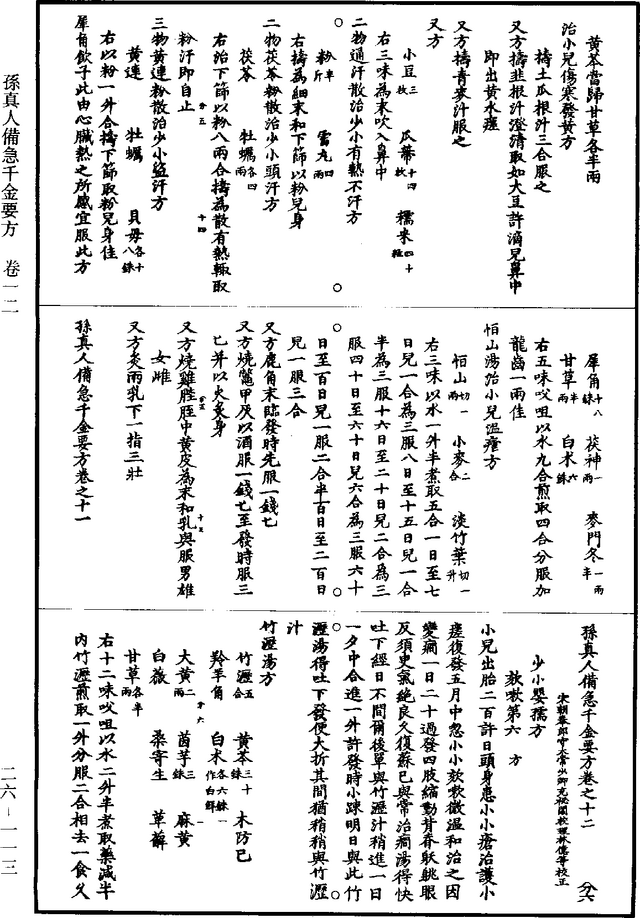 孫真人備急千金要方　卷一二
黃芩當歸甘草各半兩
治小兒傷寒發黃方
擣土瓜根汁三合服之
又方擣韭根汁澄清取如大豆許滴兒鼻中
即出黃水瘥
又方擣青麥汁服之
又方
小豆三枚　瓜蒂十四枚　糯米四十粒
右三味為末吹入鼻中
二物通汗散治少小有熱不汗方
粉半斤　雷丸四兩
右擣為細末和下篩以粉兒身
二物茯苓粉散治少小頭汗方
茯苓　牡蠣各四兩
右治下篩以粉八兩合擣為散有熱輒取
粉汗即自止
三物黃連粉散治少小盜汗方
黃連　牡蠣　貝母各十八銖
右以粉一升合擣下篩取粉兒身佳
犀角飲子此由心臟熱之所感宜服此方
犀角十八銖　茯神一兩　麥門冬一兩半
甘草半兩　白朮六銖
右五味㕮咀以水九合煎取四合分服加
龍齒一兩佳
恒山湯治小兒溫瘧方
恒山一兩切　小麥三合　淡竹葉切一升
右三味以水一升半煮取五合一日至七
日兒一合為三服八日至十五日兒一合
半為三服十六日至二十日兒二合為三
服四十日至六十日兒六合為三服六十
日至百日兒一服二合半百日至二百日
兒一服三合
又方鹿角末臨發時先服一錢匕
又方燒鼈甲灰以酒服一錢匕至發時服三
匕并以火炙身
又方燒雞䏶胵中黃皮為末和乳與服男雄
女雌
又方炙兩乳下一指三壯
孫真人備急千金要方卷之十一
孫真人備急千金要方卷之十二　分六
宋朝奉郎守太常少卿充祕閣校理林億等校正
少小嬰孺方
欬嗽第六　方
小兒出胎二百許日頭身患小小瘡治護小
瘥復發五月中忽小小欬嗽微溫和治之因
變癇一日二十過發四肢縮動背脊㑌眺眼
反須臾氣絕良久復蘇已與常治癇湯得快
吐下經日不間爾後單與竹瀝汁稍進一日
一夕中合進一升許發時小踈明日與此竹
瀝湯得吐下發便大折其間猶稍稍與竹瀝
汁
竹瀝湯方
竹瀝五合　黃芩三十銖　木防已
羚羊角　白朮各六銖一作白鮮
大黃二兩　茵芋三銖　麻黃
白薇　桑寄生　萆薢
甘草各半兩
右十二味㕮咀以水二升半煮取藥減半
內竹瀝煎取一升分服二合相去一食久
二六－一一三